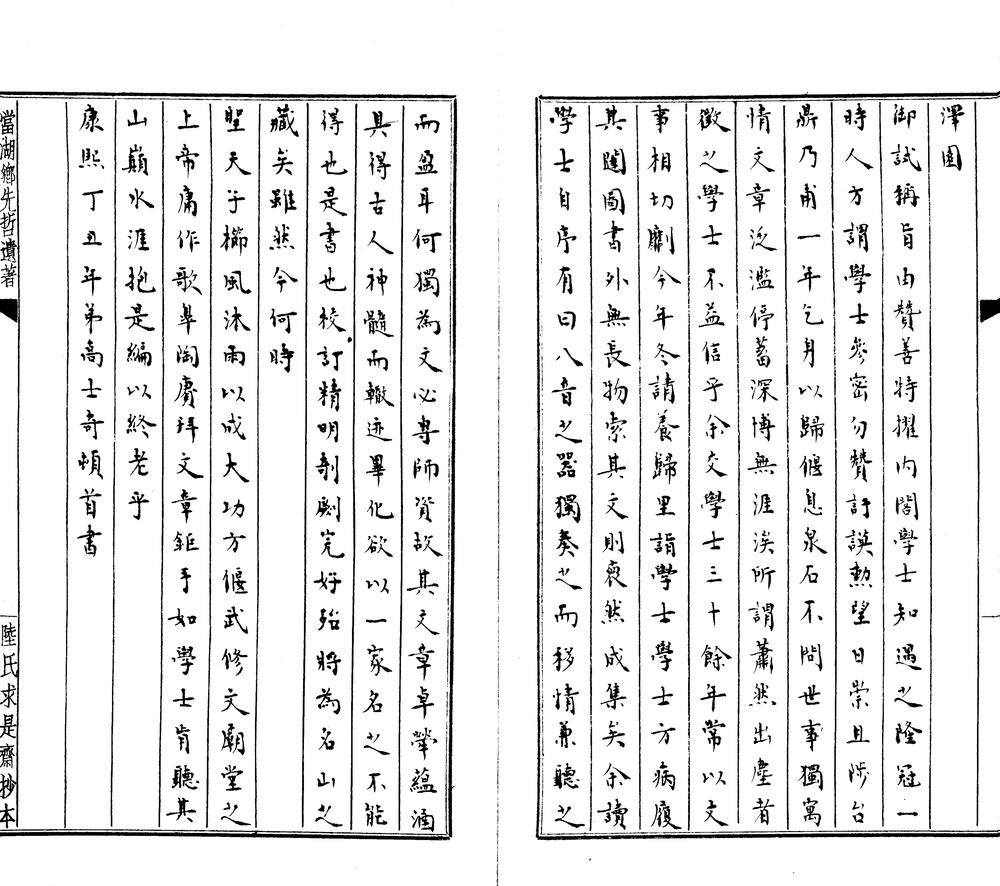 澤園
御試稱旨由贊善特擢內閣學士知遇之隆冠一
時人方謂學士參密勿贊訏謨勲望日崇且陟台
鼎乃甫一年乞身以歸偃息泉石不問世事獨寓
情文章泛濫停蓄深博無涯涘所謂蕭然出塵者
徵之學士不益信乎余交學士三十餘年常以文
事相切劘今年冬請養歸里詣學士學士方病履
其闥圖書外無長物索其文則裒然成集矣余讀
學士自序有曰八音之器獨奏之而移情兼聽之
而盈耳何獨為文必專師資故其文章卓犖蘊涵
具得古人神髓而轍迹畢化欲以一家名之不能
得也是書也校訂精明剞劂完好殆將為名山之
藏矣雖然今何時
聖天子櫛風沐雨以成大功方偃武修文廟堂之
上帝庸作歌臯陶賡拜文章鉅手如學士肯聽其
山巔水涯抱是編以終老乎
康熙丁丑年弟高士奇頓首書
當湖鄉先哲遺著
陸氏求是齋抄本